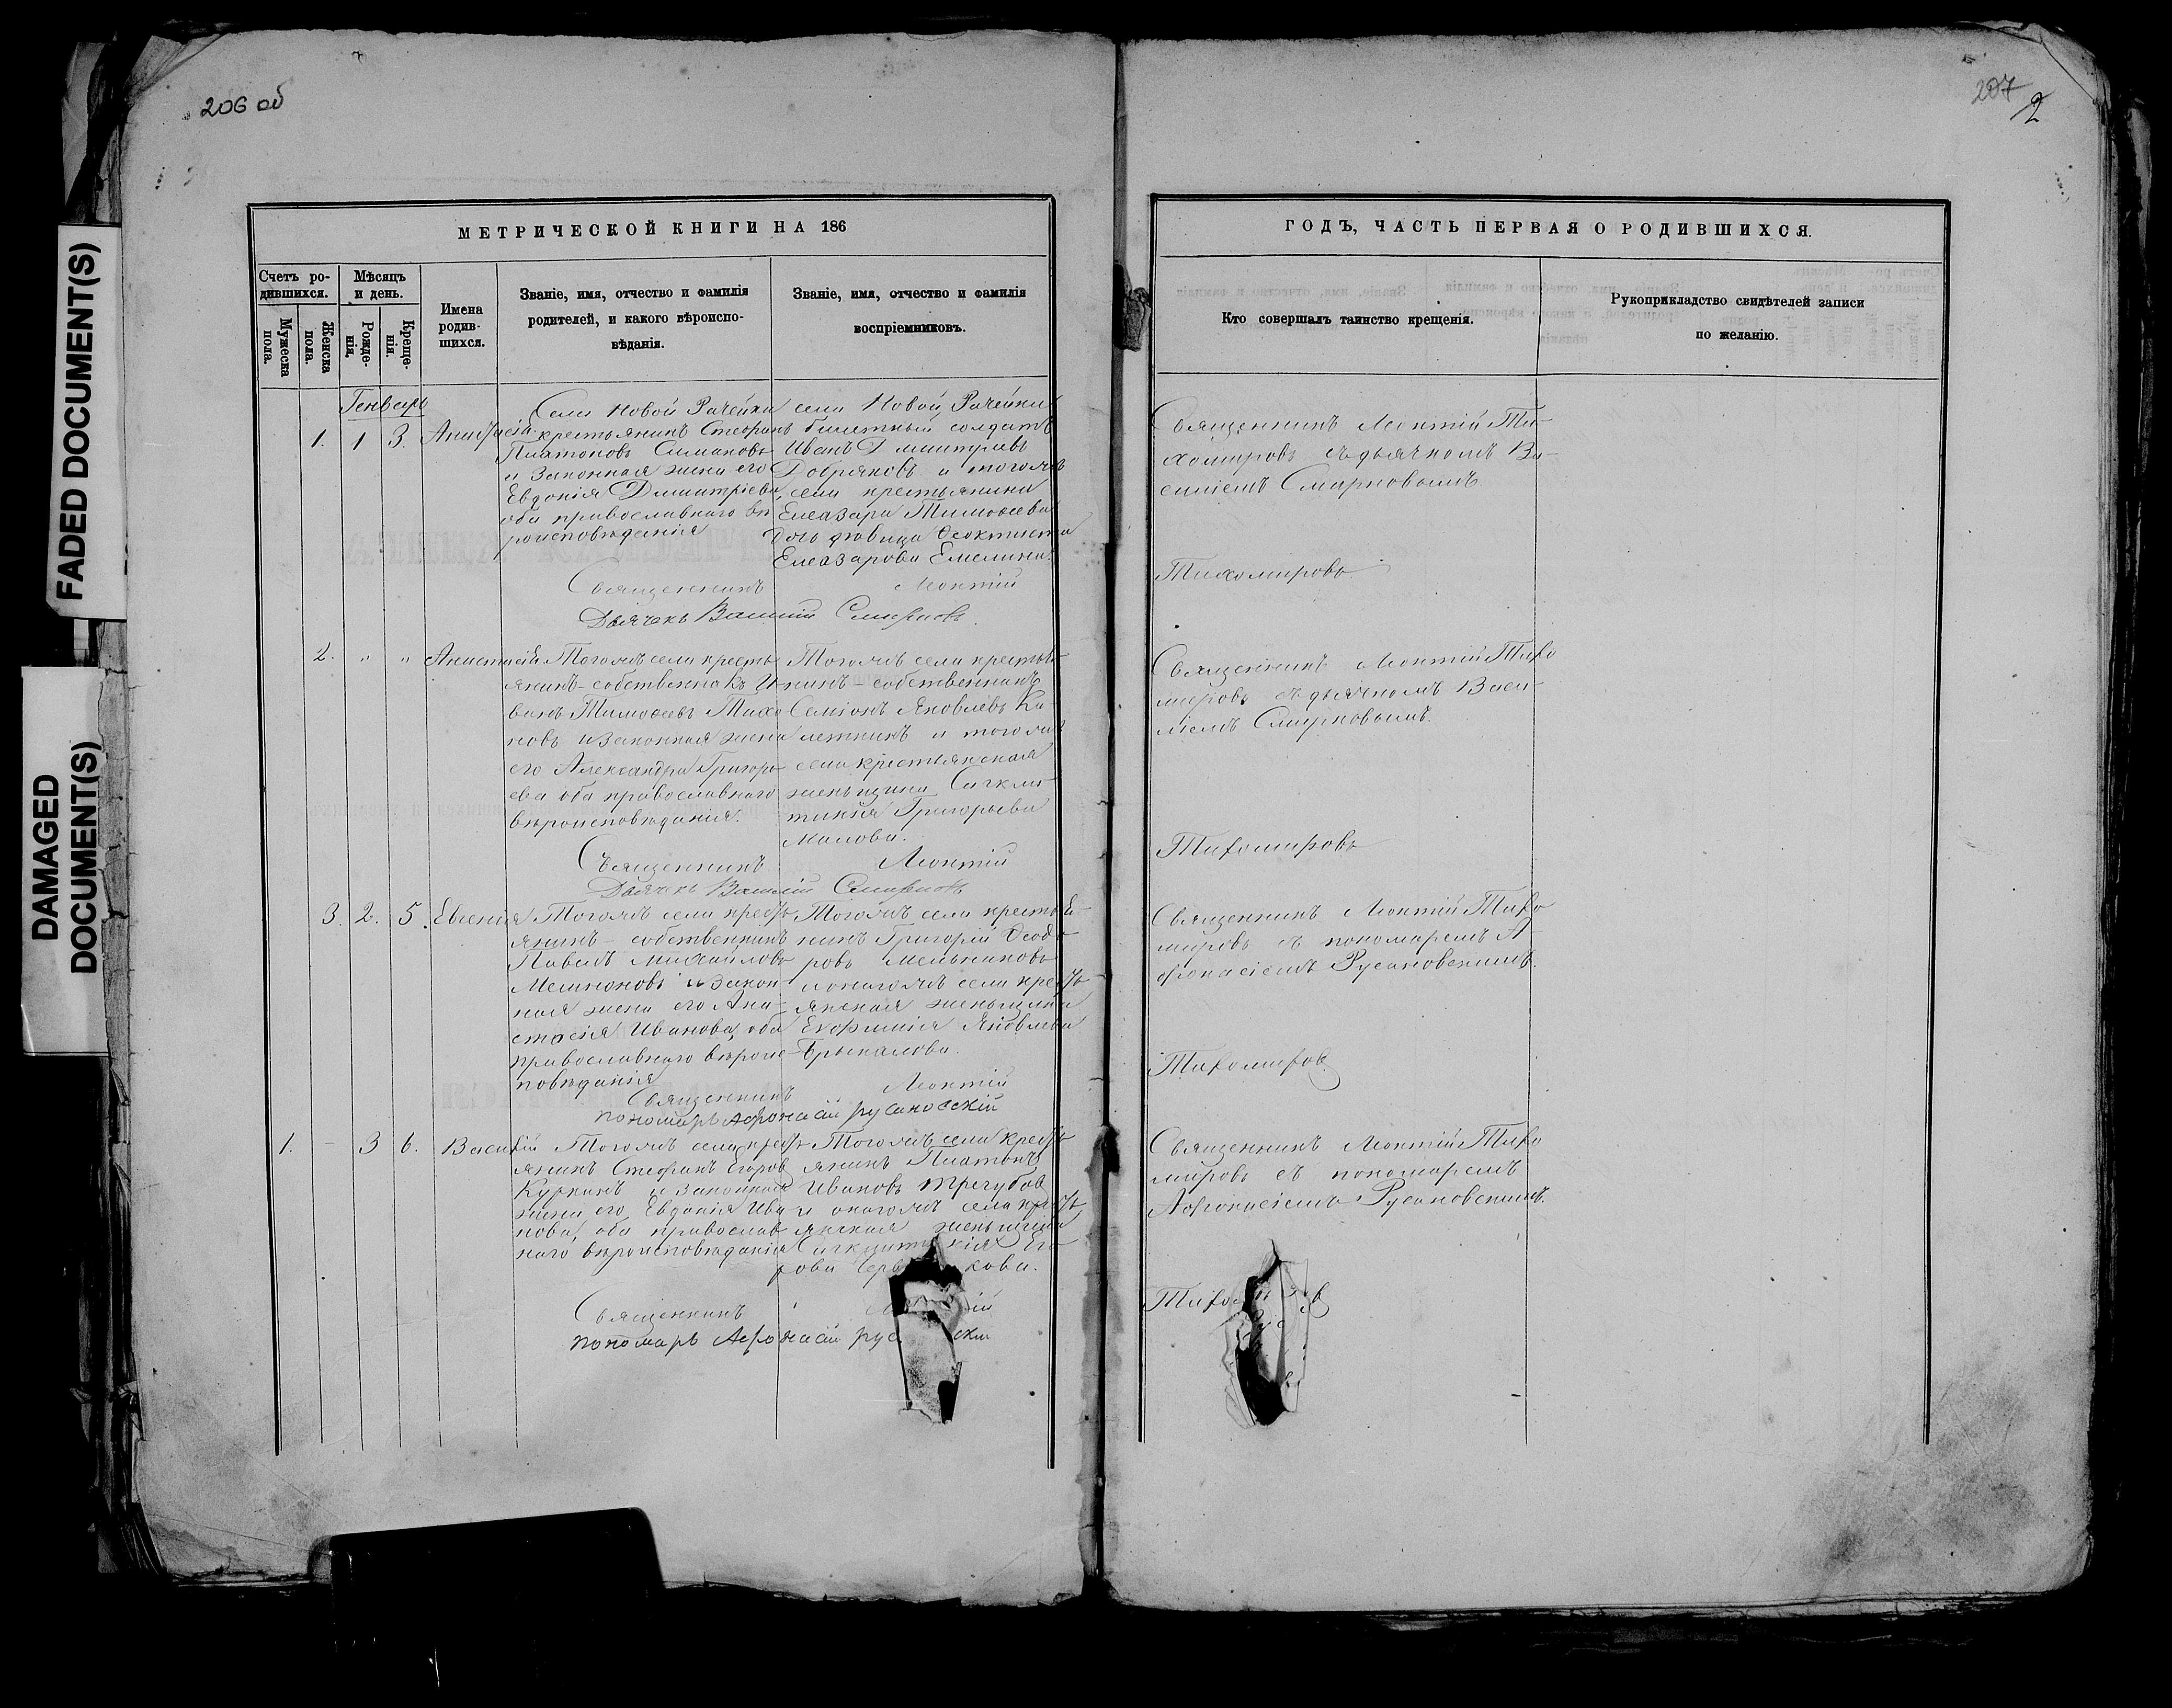 206 об
207
2
FADED DOCUMENT(S)
DAMAGED
DOCUMENT(S)
МЕТРИЧЕСКОЙ КНИГИ НА 186
Счетъ ро-
дившихся.
Мѣсяцъ
и день.
Мужеска
пола.
Женска
пола.
Рожде-
нія.
Креще-
нія.
Имена
родив-
шихся.
Званіе, имя, отчество и фамилія
родителей, и какого вѣроиспо-
вѣданія.
Званіе, имя, отчество и фамилія
воспріемниковъ.
Генварь
1. 1 3. Анастасія
Села Новой Рачейки
крестьянинъ Стефанъ
Платоновъ Симановъ
и Законная жена его
Евдокія Димитріева
оба православнаго вѣ
роисповѣданія
села Новой Рачейки
билетный солдатъ
Иванъ Димитріевъ
Добряковъ и тогожъ
села крестьянина
Елеазара Тимоѳеева
дочь дѣвица Ѳеоктиста
Елеазарова Емелина.
Священникъ Леонтій
Дьячекъ Василій Смирновъ.
2. " " Анастасія
Тогожъ села кресть
янинъ-собственникъ И
ванъ Тимоѳеевъ Тихо
новъ и Законная жена
его Александра Григорь
ева оба православнаго
вѣроисповѣданія.
Тогожъ села крестья
нинъ-собственникъ
Семіонъ Яковлевъ Ка-
лежникъ и тогожъ
села крестьянская
женьщина
Григорьева
Малова.
Священникъ Леонтій
Дьячекъ Василій Смирновъ
3. 2. 5. Евгенія
Тогожъ села кресть
янинъ-собственникъ
Павелъ Михайловъ
и Закон
ная жена его Ана-
стасія Иванова, оба
православнаго вѣроис
повѣданія
Тогожъ села крестья-
нинъ Григорій Ѳеодо
ровъ Мельниковъ
и онагожъ села кресть
янская женьщина
Евфимія Яковлева
Брыкалова.
Священникъ Леонтій
пономарь Афонасій русановскій
1. - 3 6. Василій
Тогожъ села кресть
янинъ Стефанъ Егоровъ
Куркинъ и законная
жена его Евдокія Ива
нова, оба православ
наго вѣроисповѣданія
Тогожъ села кресть
янинъ Платонъ
Ивановъ Трегубов
и онагожъ села кресть
янская женьщина
Его
рова
Священникъ
пономарь Афонасій
ГОДЪ, ЧАСТЬ ПЕРВАЯ О РОДИВШИХСЯ.
Кто совершалъ таинство крещенія.
Рукоприкладство свидѣтелей записи
по желанію.
Священникъ Леонтій Ти-
хомировъ съ дьячкомъ Ва-
силіемъ Смирновымъ.
Тихомировъ
Священникъ Леонтій Тихо
мировъ съ дьячкомъ Васи-
ліемъ Смирновымъ.
Тихомировъ
Священникъ Леонтій Тихо
мировъ съ пономаремъ А-
фонасіемъ Русановскимъ.
Тихомировъ
Священникъ Леонтій Тихо
мировъ съ пономаремъ
Афонасіемъ Русановскимъ.